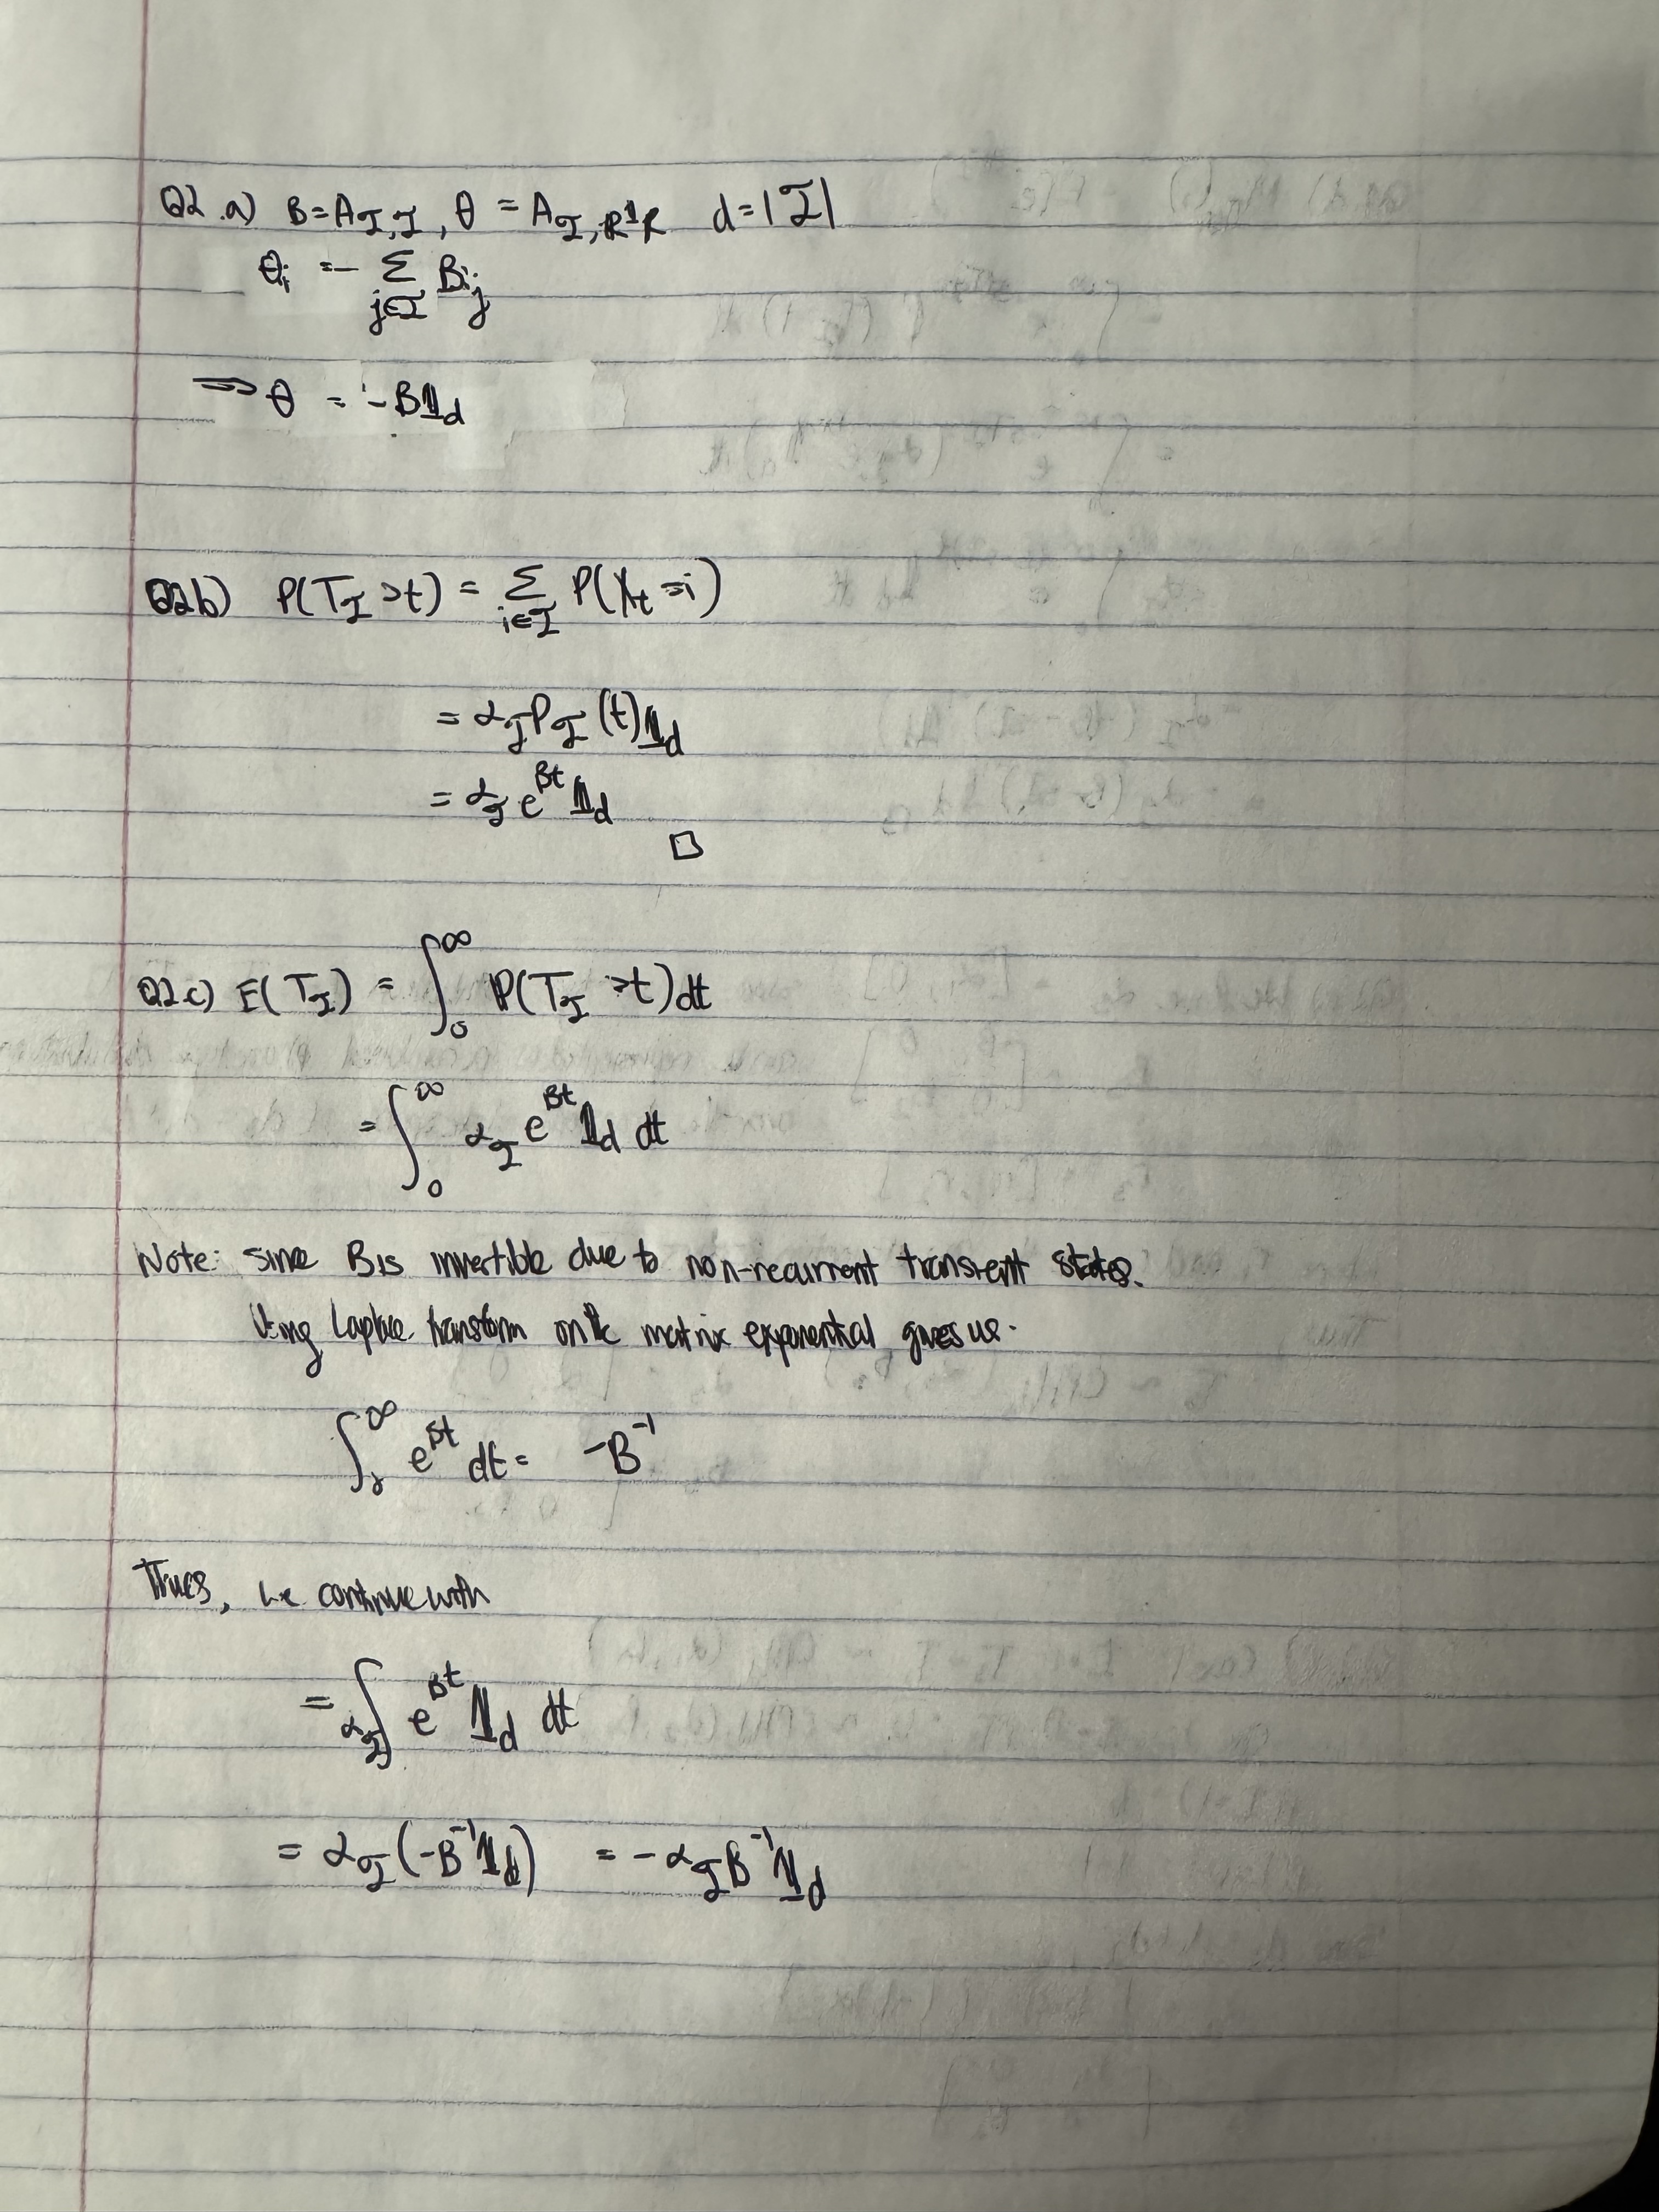 Q2.a) B=A_𝒯,𝒯 , θ = A_𝒯,R 𝟙_R   d=|𝒯|
θ_i = - Σ_{j∈𝒯} B_ij
⟹ θ = -B𝟙_d
Q2b) P(T_𝒯 >t) = Σ_{i∈𝒯} P(X_t=i)
= α_𝒯 P_𝒯 (t)𝟙_d
= α_𝒯 e^{Bt} 𝟙_d
□
Q2.c) E(T_𝒯) = ∫_0^∞ P(T_𝒯 >t)dt
= ∫_0^∞ α_𝒯 e^{Bt} 𝟙_d dt
Note: Since B is invertible due to non-recurrent transient states.
Using Laplace transform on the matrix exponential, gives us.
∫_0^∞ e^{Bt} dt = -B^{-1}
Thus, we continue with
= α_𝒯 ∫ e^{Bt} 𝟙_d dt
= α_𝒯 (-B^{-1}𝟙_d) = -α_𝒯 B^{-1} 𝟙_d